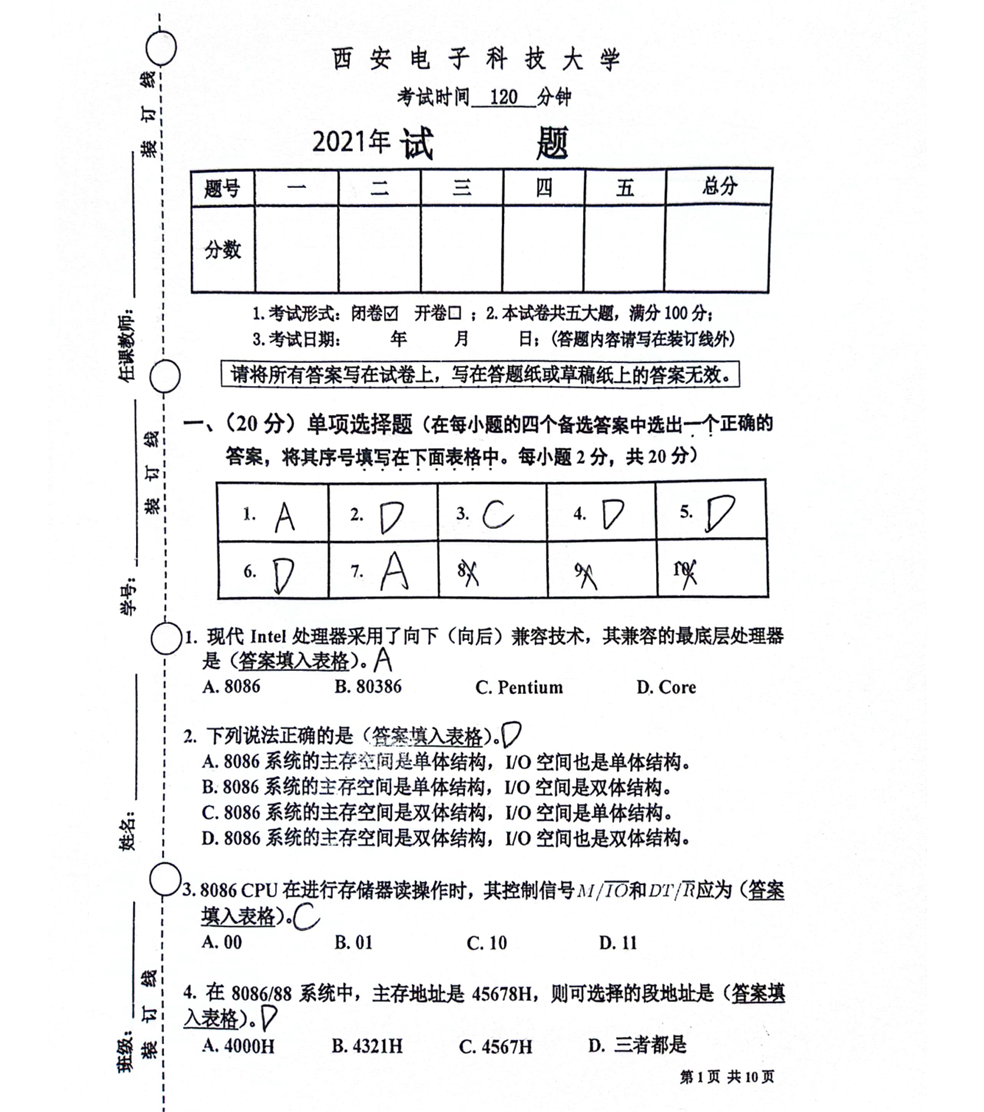 西安电子科技大学
考试时间 120 分钟
2021年 试 题
题号 一 二 三 四 五 总分
分数
1.考试形式：闭卷☑ 开卷□；2.本试卷共五大题，满分100分；
3.考试日期： 年 月 日；（答题内容请写在装订线外）
请将所有答案写在试卷上，写在答题纸或草稿纸上的答案无效。
一、（20分）单项选择题（在每小题的四个备选答案中选出一个正确的
答案，将其序号填写在下面表格中。每小题2分，共20分）
1. A 2. D 3. C 4. D 5. D
6. D 7. A 8. 9. 10.
1. 现代 Intel 处理器采用了向下（向后）兼容技术，其兼容的最底层处理器
是（答案填入表格）。A
A. 8086 B. 80386 C. Pentium D. Core
2. 下列说法正确的是（答案填入表格）。D
A. 8086 系统的主存空间是单体结构，I/O 空间也是单体结构。
B. 8086 系统的主存空间是单体结构，I/O 空间是双体结构。
C. 8086 系统的主存空间是双体结构，I/O 空间是单体结构。
D. 8086 系统的主存空间是双体结构，I/O 空间也是双体结构。
3. 8086 CPU 在进行存储器读操作时，其控制信号 M/I̅O̅ 和 DT/R̅ 应为（答案
填入表格）。C
A. 00 B. 01 C. 10 D. 11
4. 在 8086/88 系统中，主存地址是 45678H，则可选择的段地址是（答案填
入表格）。D
A. 4000H B. 4321H C. 4567H D. 三者都是
第 1 页 共 10 页
装 订 线
任课教师：
装 订 线
学号：
姓名：
装 订 线
班级：